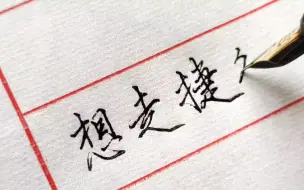 想走捷